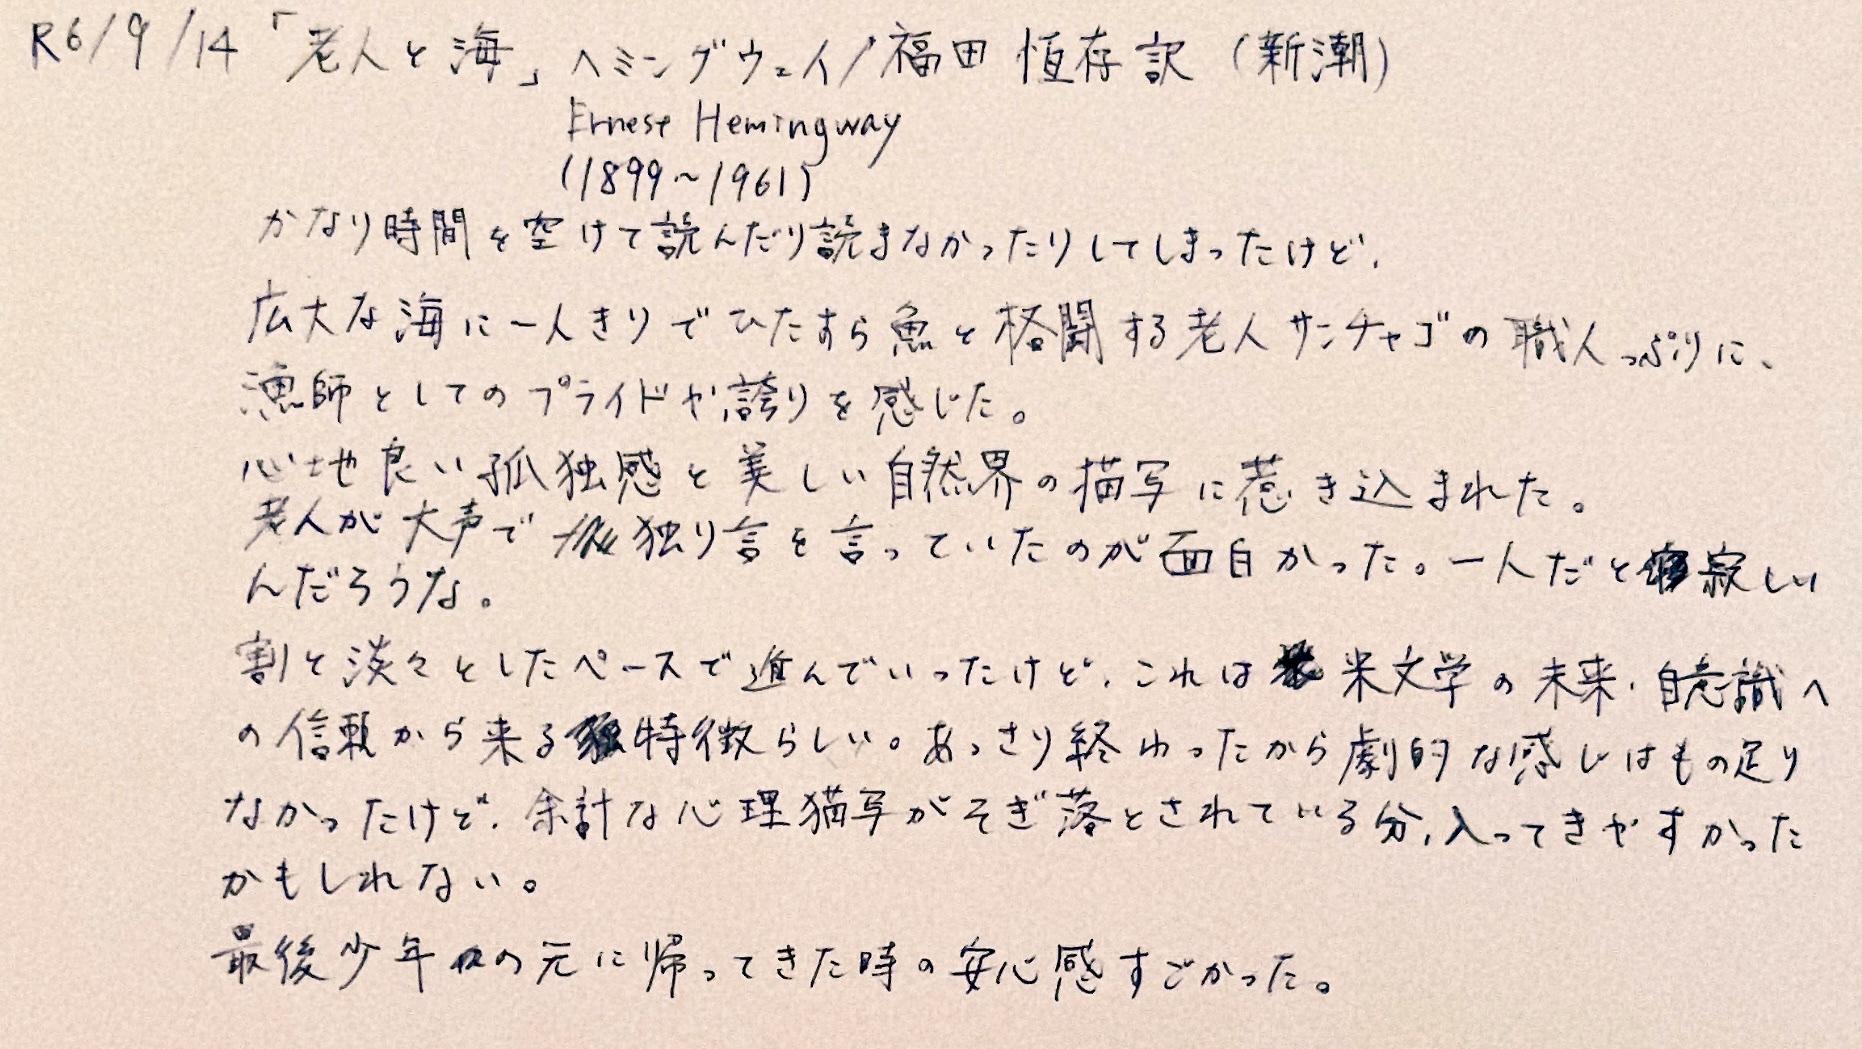 R6/9/14「老人と海」ヘミングウェイ/福田 恒存訳(新潮)
Ernest Hemingway
(1899~1961)
かなり時間を空けて読んだり読まなかったりしてしまったけど、
広大な海に一人きりでひたすら魚と格闘する老人サンチャゴの職人っぷりに、
漁師としてのプライドや誇りを感じた。
心地良い孤独感と美しい自然界の描写に惹き込まれた。
老人が大声で独り言を言っていたのが面白かった。一人だと寂しい
んだろうな。
割と淡々としたペースで進んでいったけど、これは米文学の未来・自意識へ
の信頼から来る特徴らしい。あっさり終わったから劇的な感じはもの足り
なかったけど、余計な心理描写がそぎ落とされている分、入ってきやすかった
かもしれない。
最後少年の元に帰ってきた時の安心感すごかった。